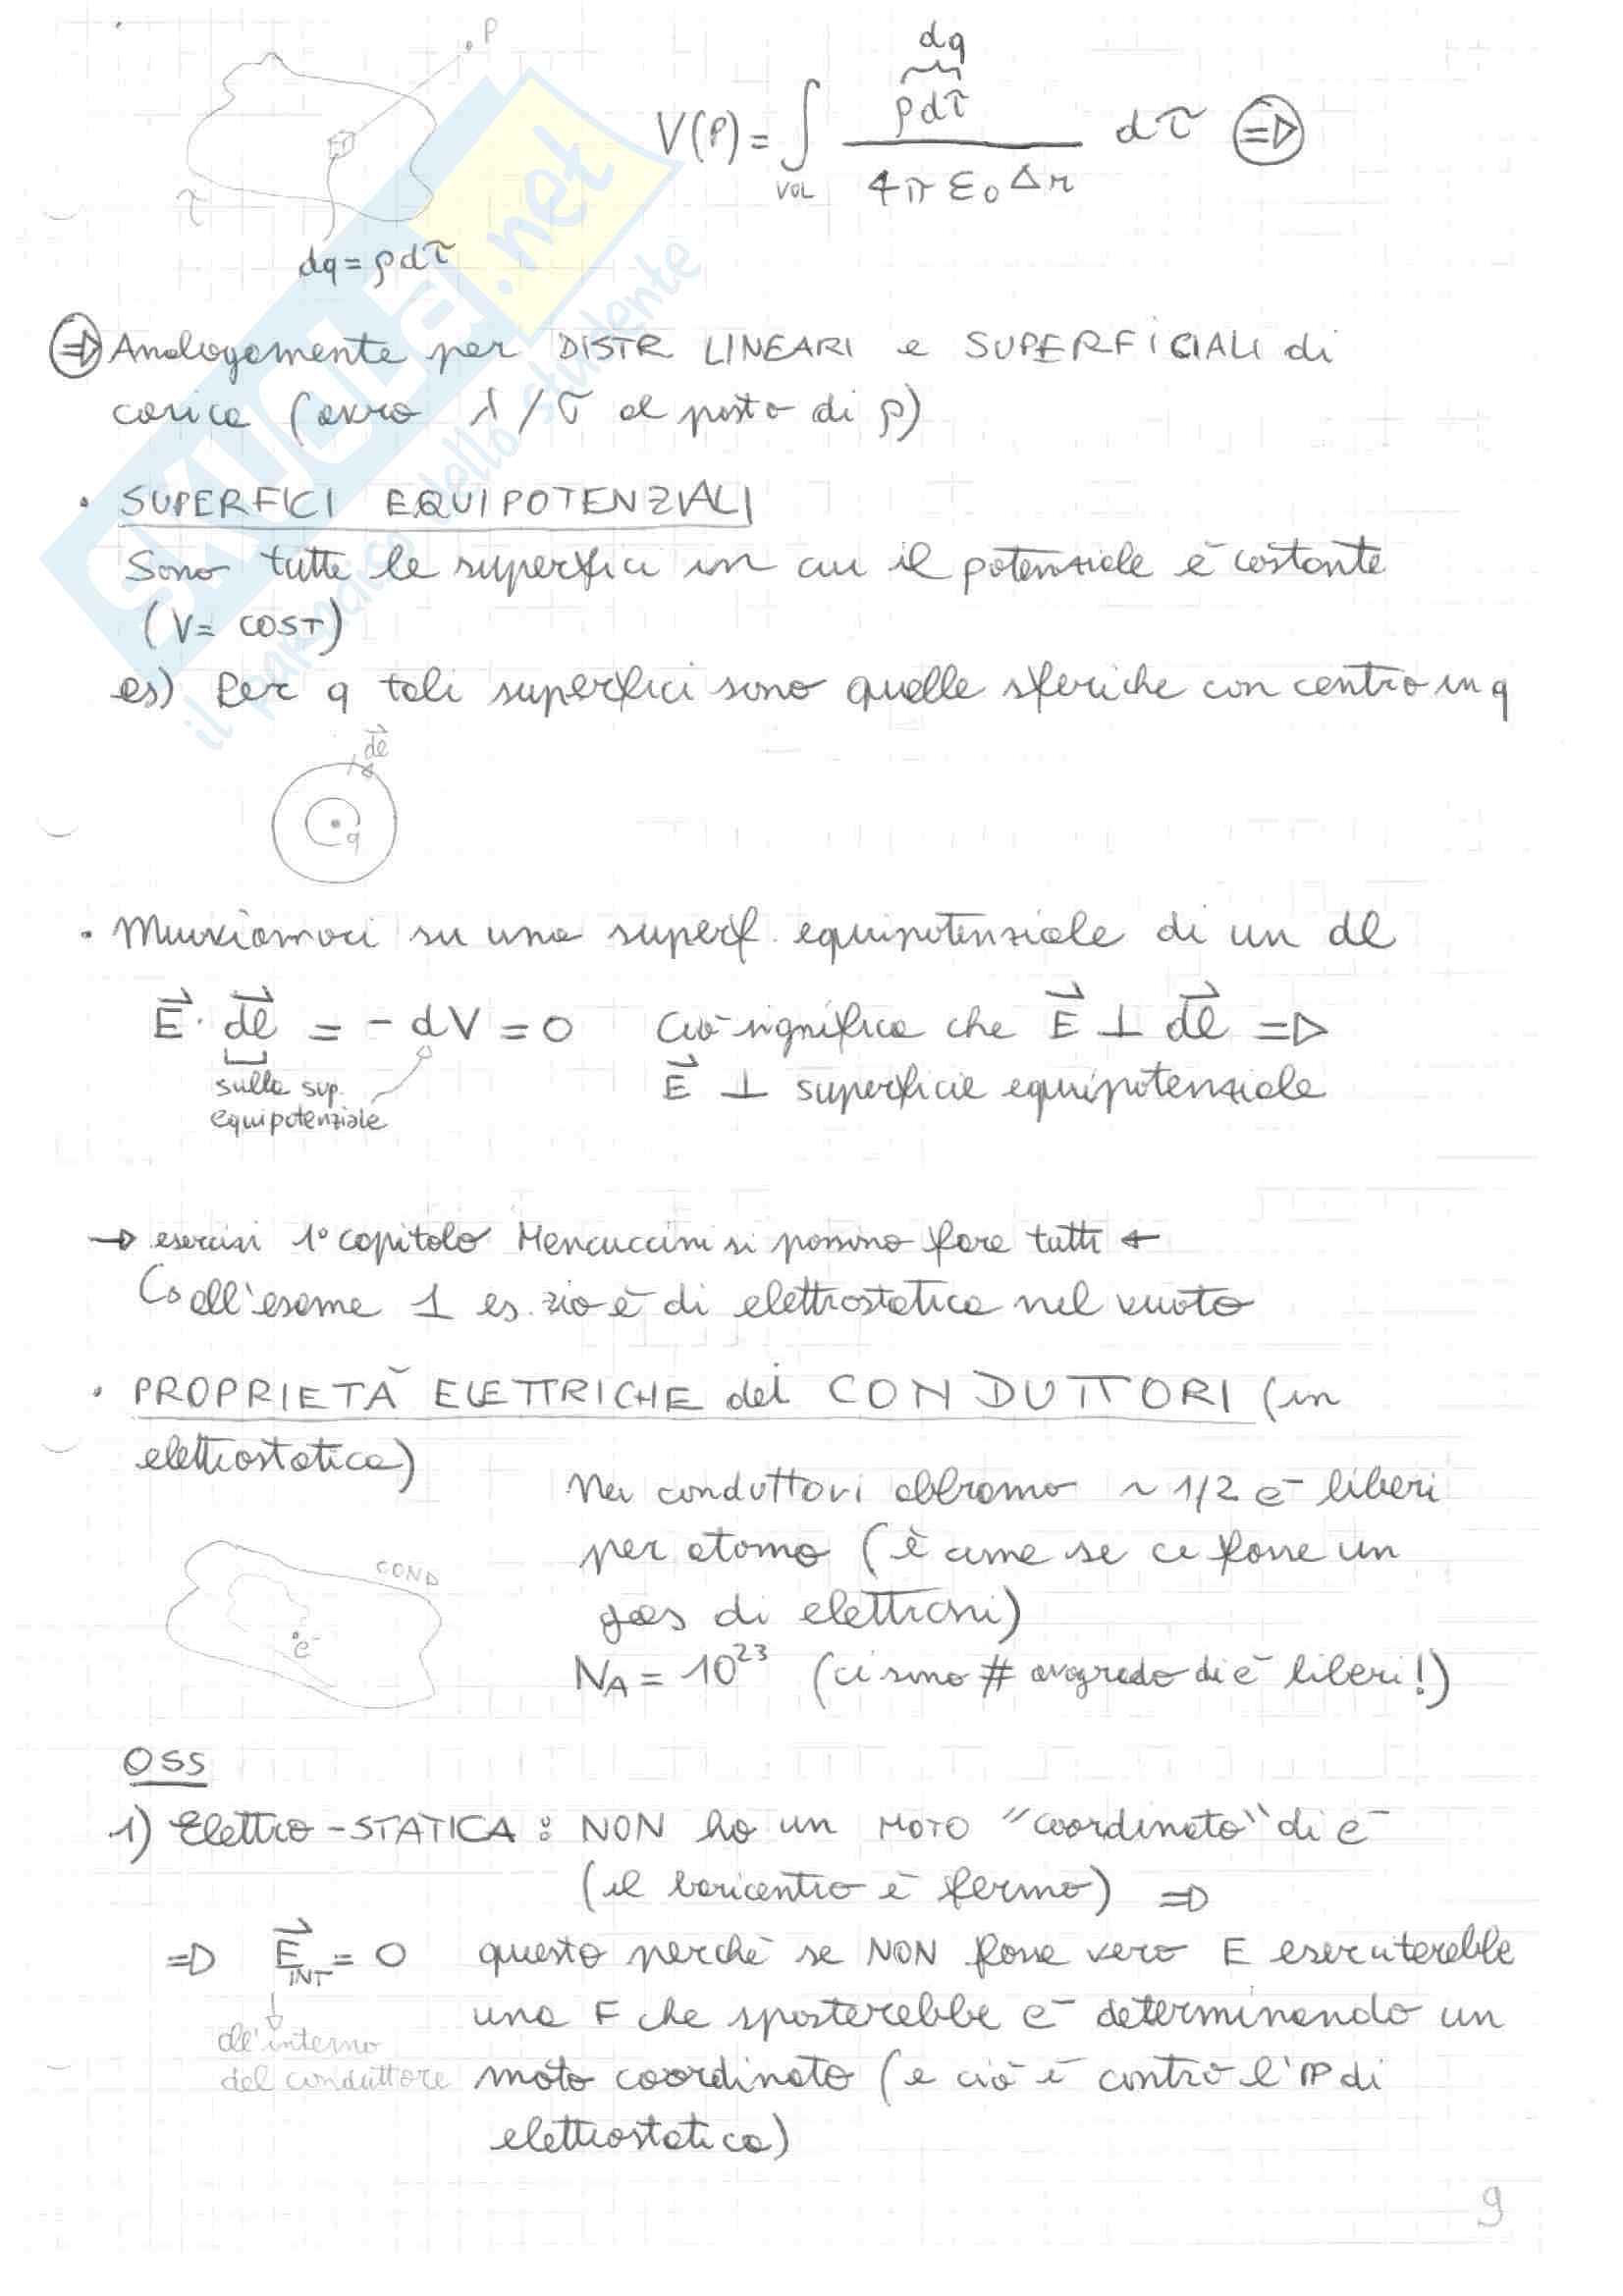 P
dq
V(P) = ∫ ρdτ / 4πε₀Δr dτ ⇒
VOL
τ
dq = ρdτ
⇒ Analogamente per DISTR LINEARI e SUPERFICIALI di
carica (avrò λ/σ al posto di ρ)
• SUPERFICI EQUIPOTENZIALI
Sono tutte le superfici in cui il potenziale è costante
(V = COST)
es) Per q tali superfici sono quelle sferiche con centro in q
dl
q
• Muoviamoci su una superf. equipotenziale di un dl
E⃗ · dl⃗ = - dV = 0 Ciò significa che E⃗ ⊥ dl⃗ ⇒
sulla sup. equipotenziale
E⃗ ⊥ superficie equipotenziale
→ esercizi 1° capitolo Mencuccini si possono fare tutti ←
↳ all'esame 1 es.zio è di elettrostatica nel vuoto
• PROPRIETÀ ELETTRICHE dei CONDUTTORI (in
elettrostatica)
Nei conduttori abbiamo ~ 1/2 e⁻ liberi
per atomo (è come se ci fosse un
gas di elettroni)
COND
e⁻
N_A = 10²³ (ci sono # avogrado di e⁻ liberi!)
OSS
1) Elettro-STATICA: NON ho un MOTO "coordinato" di e⁻
(il baricentro è fermo) ⇒
⇒ E⃗_INT = 0 questo perchè se NON fosse vero E eserciterebbe
una F che sposterebbe e⁻ determinando un
all'interno
del conduttore
moto coordinato (e ciò è contro l'IP di
elettrostatica)
9
SKUOLA.net
il paradiso dello studente